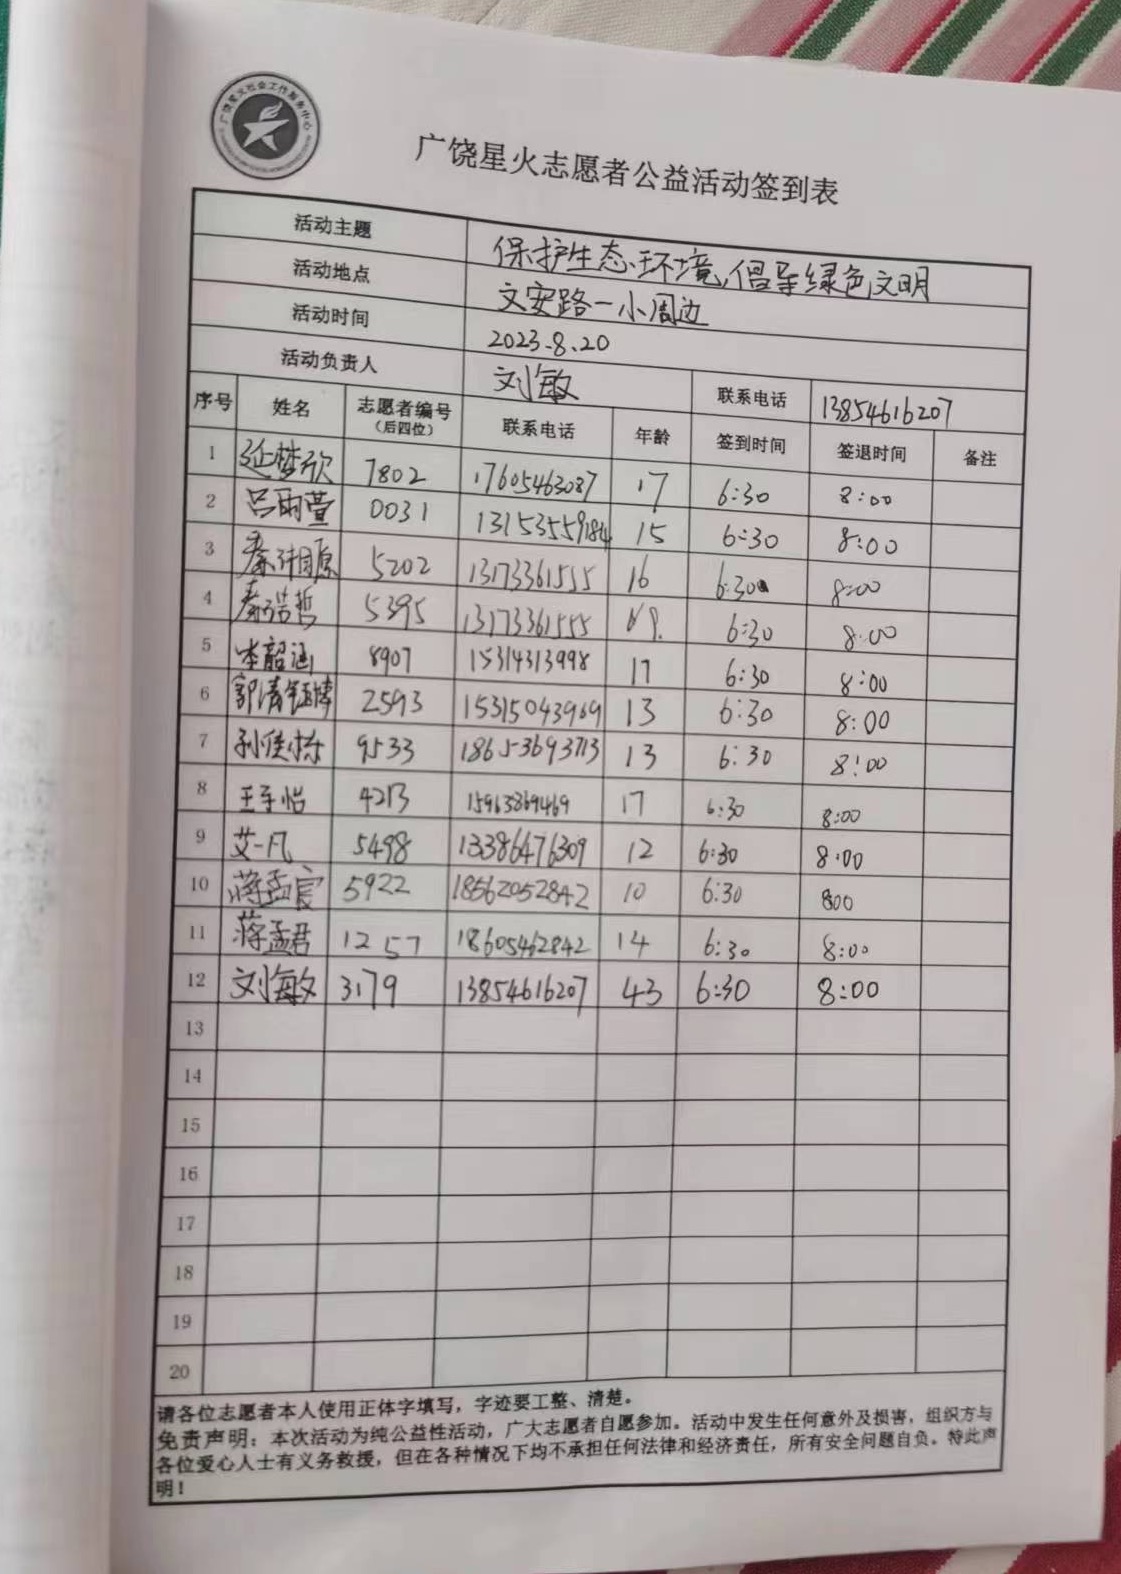 广饶星火社会工作服务中心
广饶星火志愿者公益活动签到表
活动主题 保护生态环境,倡导绿色文明
活动地点 文安路一小周边
活动时间 2023.8.20
活动负责人 刘海敏 联系电话 13854616207
序号 姓名 志愿者编号(后四位) 联系电话 年龄 签到时间 签退时间 备注
1 延梦欣 7802 17605463087 17 6:30 8:00
2 吕雨萱 0031 13153559184 15 6:30 8:00
3 秦 5202 13173361555 16 6:30 8:00
4 秦浩哲 5395 13173361555 6:30 8:00
5 韶涵 8907 15314313998 17 6:30 8:00
6 郭清 2593 15315043969 13 6:30 8:00
7 孙佳栋 9533 18653693713 13 6:30 8:00
8 王子怡 4213 15963869469 17 6:30 8:00
9 艾一凡 5498 13386476309 12 6:30 8:00
10 蒋孟宸 5922 18562052842 10 6:30 800
11 蒋孟君 1257 18605462842 14 6:30 8:00
12 刘海敏 3179 13854616207 43 6:30 8:00
13
14
15
16
17
18
19
20
请各位志愿者本人使用正体字填写，字迹要工整、清楚。
免责声明：本次活动为纯公益性活动，广大志愿者自愿参加。活动中发生任何意外及损害，组织方与
各位爱心人士有义务救援，但在各种情况下均不承担任何法律和经济责任，所有安全问题自负。特此声
明！